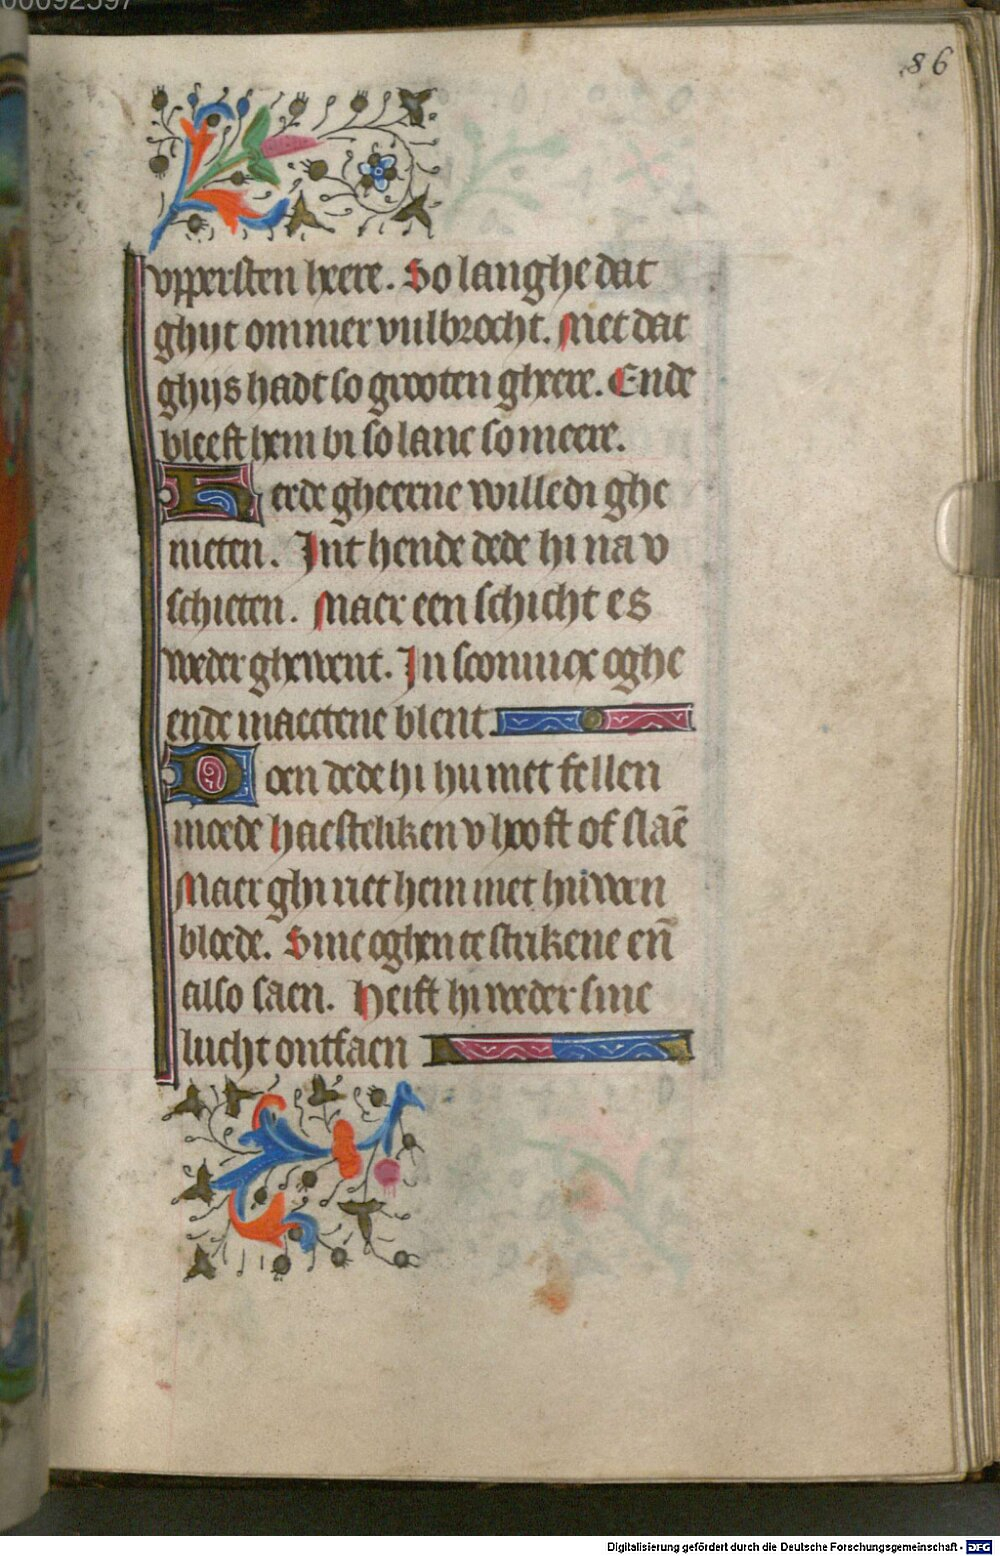 00092597
86
vppersten heere. So langhe dat
ghijt ommer vulbrocht. Met dat
ghijs hadt so grooten gheere. Ende
bleeft hem bi so lanc so meere.
Herde gheerne willedi ghe
nieten. Int hende dede hi na v
schieten. Maer een schicht es
weder ghewent. In sconincx oghe
ende maectene blent.
Doen dede hi hu met fellen
moede haestelikken v hooft of slaē
Maer ghi riet hem met huwen
bloede. Sine oghen te strikene en̄
also saen. Heift hi weder sine
lucht ontfaen
Digitalisierung gefördert durch die Deutsche Forschungsgemeinschaft - DFG